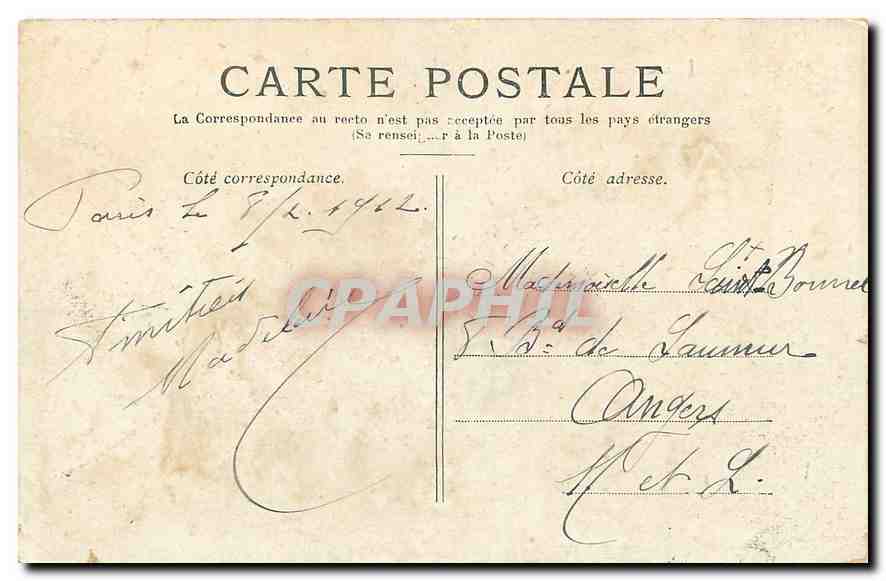 CARTE POSTALE
La Correspondance au recto n'est pas acceptée par tous les pays étrangers
(Se renseigner à la Poste)
Côté correspondance.
Paris le 8/2.1912.
Amitiés
Côté adresse.
Mademoiselle Saint Bonnet
5 Bd de Saumur
Angers
M et L.
CPAPHIL